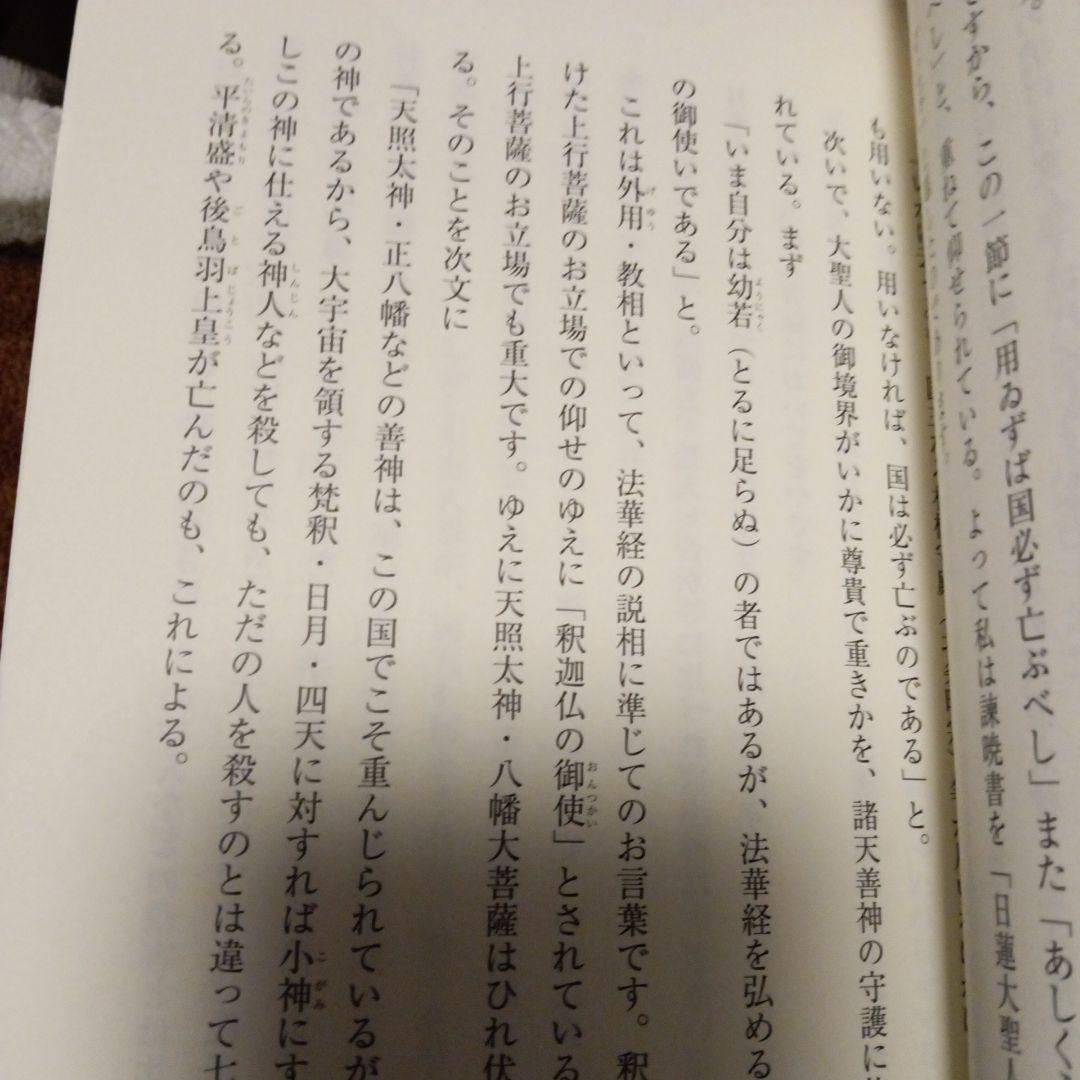 すから、この一節に「用ゐずば国必ず亡ぶべし」また「あしく
重ねて仰せられている。よって私は諫暁書を「日蓮大聖人
も用いない。用いなければ、国は必ず亡ぶのである」と。
次いで、大聖人の御境界がいかに尊貴で重きかを、諸天善神の守護に
れている。まず
「いま自分は幼若（とるに足らぬ）の者ではあるが、法華経を弘める
の御使いである」と。
これは外用・教相といって、法華経の説相に準じてのお言葉です。釈
けた上行菩薩のお立場での仰せのゆえに「釈迦仏の御使」とされている
上行菩薩のお立場でも重大です。ゆえに天照太神・八幡大菩薩はひれ伏
る。そのことを次文に
「天照太神・正八幡などの善神は、この国でこそ重んじられているが
の神であるから、大宇宙を領する梵釈・日月・四天に対すれば小神にす
しこの神に仕える神人などを殺しても、ただの人を殺すのとは違って七
る。平清盛や後鳥羽上皇が亡んだのも、これによる。